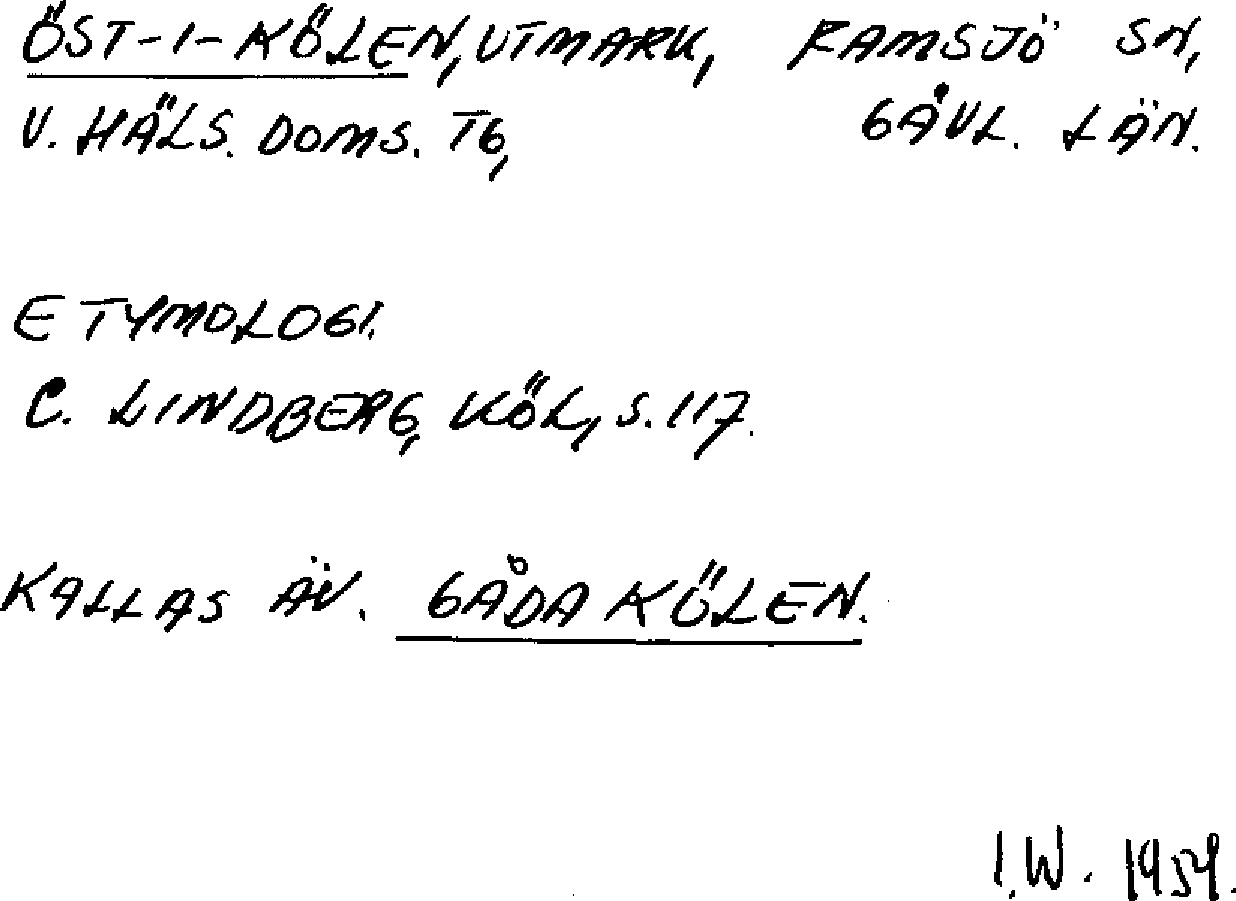 ÖST-I-KÖLEN, UTMARK, RAMSJÖ SN,
V. HÄLS. DOMS. TG, GÄVL. LÄN.
ETYMOLOGI.
C. LINDBERG, KÖL, S. 117.
KALLAS ÄV. GÅDA KÖLEN.
I.W. 1959.